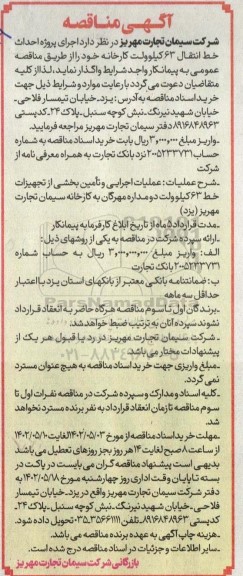 آگهی مناقصه
شرکت سیمان تجارت مهریز در نظر دارد اجرای پروژه احداث
خط انتقال ۶۳ کیلوولت کارخانه خود را از طریق مناقصه
عمومی به پیمانکار واجد شرایط واگذار نماید، لذا از کلیه
متقاضیان دعوت می گردد با رعایت موارد و شرایط ذیل جهت
خرید اسناد مناقصه به آدرس: یزد ـ خیابان تیمسار فلاحی ـ
خیابان شهید نیرنگ ـ نبش کوچه سنبل ـ پلاک ۲۴ ـ کدپستی
۸۹۱۶۸۴۸۹۶۳ دفتر سیمان تجارت مهریز مراجعه فرمایید.
ـ واریز مبلغ ۳,۰۰۰,۰۰۰ ریال بابت خرید اسناد مناقصه به شماره
حساب ۲۰۰۵۲۳۳۷۳۱ نزد بانک تجارت به همراه معرفی نامه از
شرکت
ـ شرح عملیات: عملیات اجرایی و تأمین بخشی از تجهیزات
خط ۶۳ کیلوولت دو مداره مهرگان به کارخانه سیمان تجارت
مهریز (یزد)
ـ مدت قرارداد ۵ ماه از تاریخ ابلاغ کارفرما به پیمانکار
ـ ارائه سپرده شرکت در مناقصه به یکی از روشهای ذیل:
الف: واریز مبلغ ۳,۰۰۰,۰۰۰,۰۰۰ ریال به حساب شماره
۲۰۰۵۲۳۳۷۳۱ بانک تجارت
ب: ضمانتنامه بانکی معتبر از بانکهای استان یزد با اعتبار
حداقل سه ماهه
ـ برندگان اول تا سوم مناقصه هرگاه حاضر به انعقاد قرارداد
نشوند سپرده آنان به ترتیب ضبط خواهد شد.
ـ شرکت سیمان تجارت مهریز در رد یا قبول هر یک از
پیشنهادات مختار می باشد.
ـ مبلغ واریزی جهت خرید اسناد مناقصه به هیچ عنوان مسترد
نمی گردد.
ـ کلیه اسناد و مدارک و سپرده شرکت در مناقصه نفرات اول تا
سوم مناقصه تا زمان انعقاد قرارداد به نفر برنده مسترد نخواهد
شد.
ـ مهلت خرید اسناد مناقصه از مورخ ۱۴۰۲/۰۵/۰۳ لغایت ۱۴۰۲/۰۵/۱۰
از ساعت ۸ صبح لغایت ۱۴ هر روز بجز روزهای تعطیل می باشد
بدیهی است پیشنهاد مناقصه گران می بایست در پاکت در
بسته تا پایان وقت اداری روز چهارشنبه مورخ ۱۴۰۲/۰۵/۱۸ به
دفتر شرکت سیمان تجارت مهریز واقع در یزد ـ خیابان تیمسار
فلاحی ـ خیابان شهید نیرنگ ـ نبش کوچه سنبل ـ پلاک ۲۴ ـ
کدپستی ۸۹۱۶۸۴۸۹۶۳ ـ تلفن ۰۳۵,۳۵۶۶۱۱۱۱ تحویل داده شود.
ـ هزینه چاپ آگهی به عهده برنده مناقصه می باشد.
ـ سایر اطلاعات و جزئیات در اسناد مناقصه درج شده است.
بازرگانی شرکت سیمان تجارت مهریز